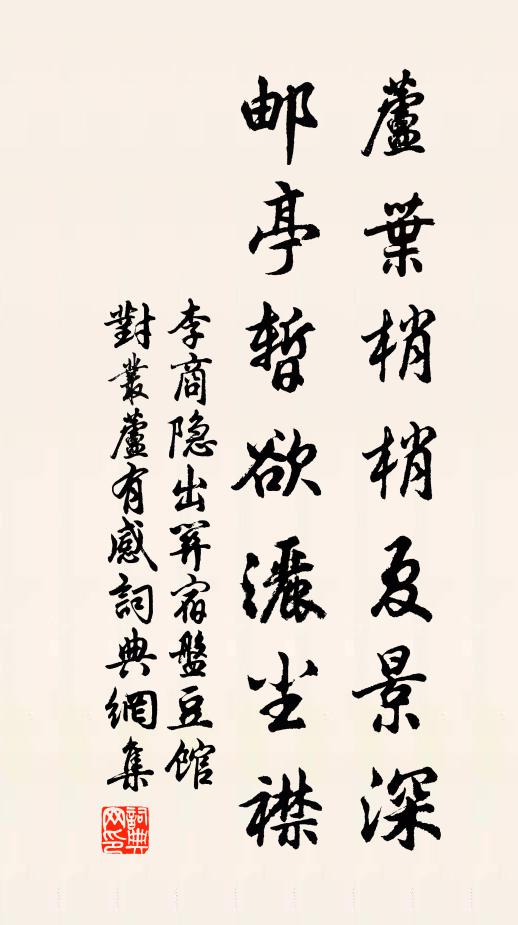 蘆葉梢梢夏景深
邮亭暫欲灑尘襟
李商隐出関宿盤豆馆
對叢蘆有感詞典網集
詞典
网印